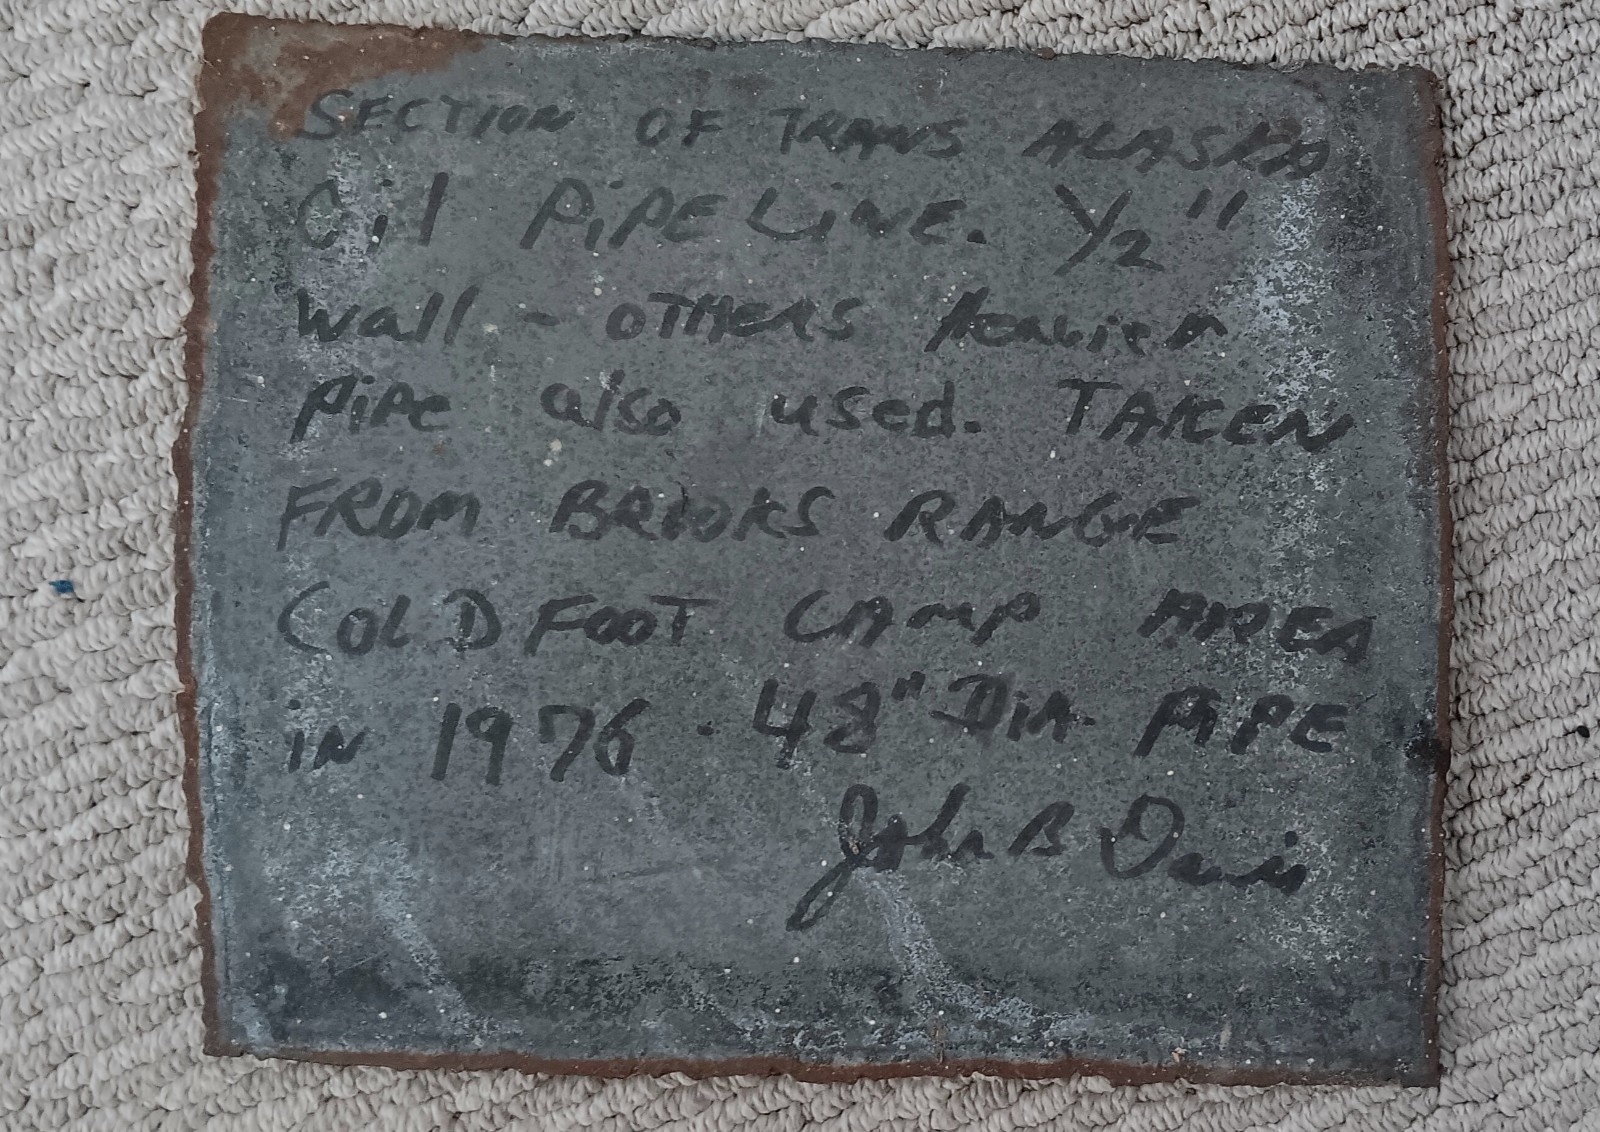 SECTION OF TRANS ALASKA
Oil PiPELiNE. 1/2"
wall - OTHERS Heavier
PiPe also used. TAKEN
FROM BROOKS RANGE
COLDFOOT CAMP AREA
iN 1976. 48" DiA. PiPE
John B Davis